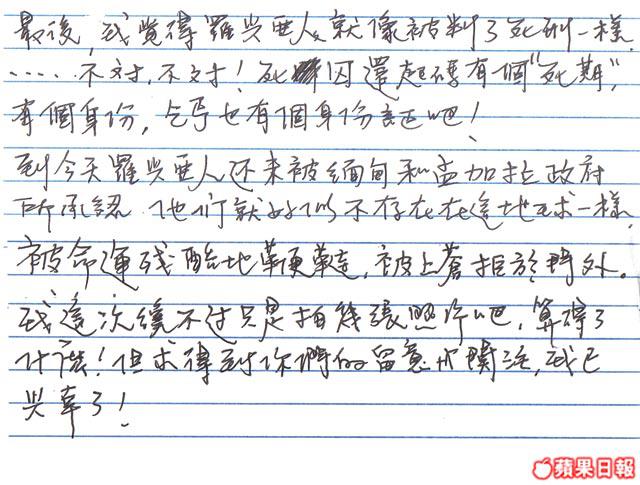 最後,我覺得羅兴亜人就像被判了死刑一樣.
......不对,不对!死囚還起碼有個"死期",
有個身份,乞丐也有個身份証吧!
到今天羅兴亜人还未被緬甸和孟加拉政府
所承認 他们就好似不存在在這地球一樣,
被命運残酷地鞭韃,被上蒼拒於門外。
我這次纔不过只是拍幾張照片吧,算得了
什麽!但求得到你們的留意和關注,我已
兴幸了!
蘋果日報